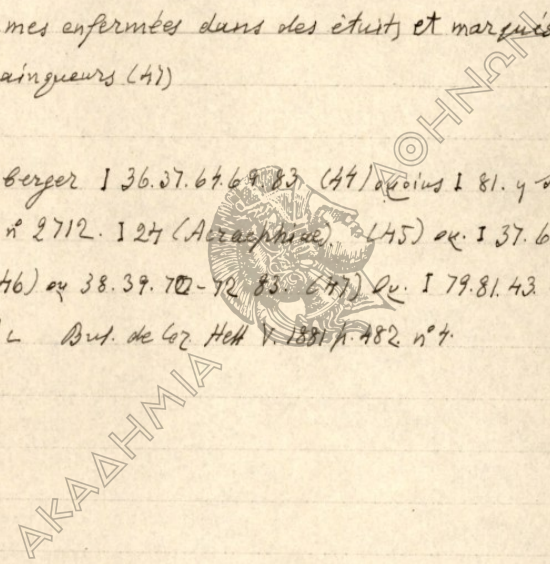 mes enfermées dans des étuits et marqués
ainqueurs (47)
berger I 36.37.64.69.83 (44) I 81. y
n° 2712. I 24 (Acraephiae) (45) ου. I 37.6
46) ου 38.39.70-72 83. (47) Ου. I 79.81.43
Bul. de Cor. Hell V. 1881 p. 482 n° 4.
ΑΚΑΔΗΜΙΑ ΑΘΗΝΩΝ